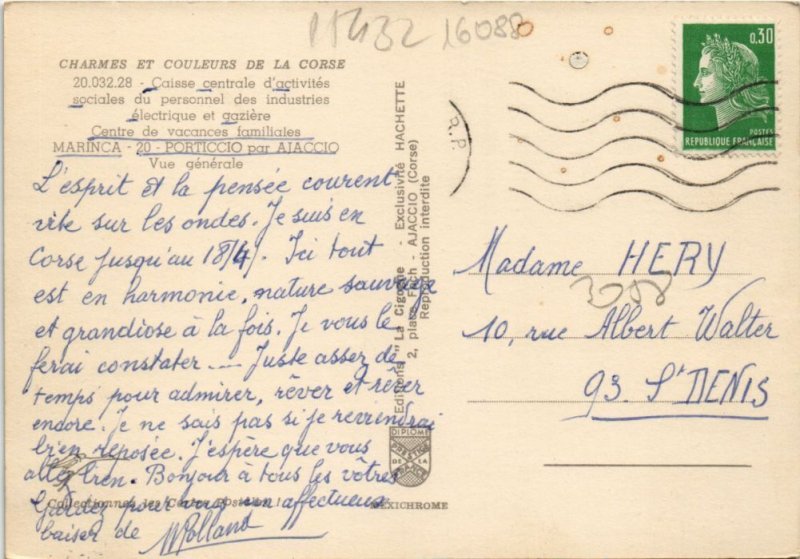 11432 16088
CHARMES ET COULEURS DE LA CORSE
20.032.28 - Caisse centrale d'activités
sociales du personnel des industries
électrique et gazière
Centre de vacances familiales
MARINCA - 20 - PORTICCIO par AJACCIO
Vue générale
L'esprit et la pensée courent
vite sur les ondes. Je suis en
Corse jusqu'au 18/4/. Ici tout
est en harmonie, nature sauvage
et grandiose à la fois. Je vous le
ferai constater .... Juste assez de
temps pour admirer, rêver et rêver
encore. Je ne sais pas si je reviendrai
bien reposée. J'espère que vous
allez bien. Bonjour à tous les vôtres
Gardez pour vous un affectueux
baiser de
Rolland
Collectionnez les Cartes Postales !
MEXICHROME
Editions "La Cigogne" - Exclusivité HACHETTE
2, place Foch - AJACCIO (Corse)
Reproduction interdite
DIPLOME
PRESTIGE
DE LA
R.P.
0,30
POSTES
REPUBLIQUE FRANÇAISE
Madame HERY
3088
10, rue Albert Walter
93 St DENIS